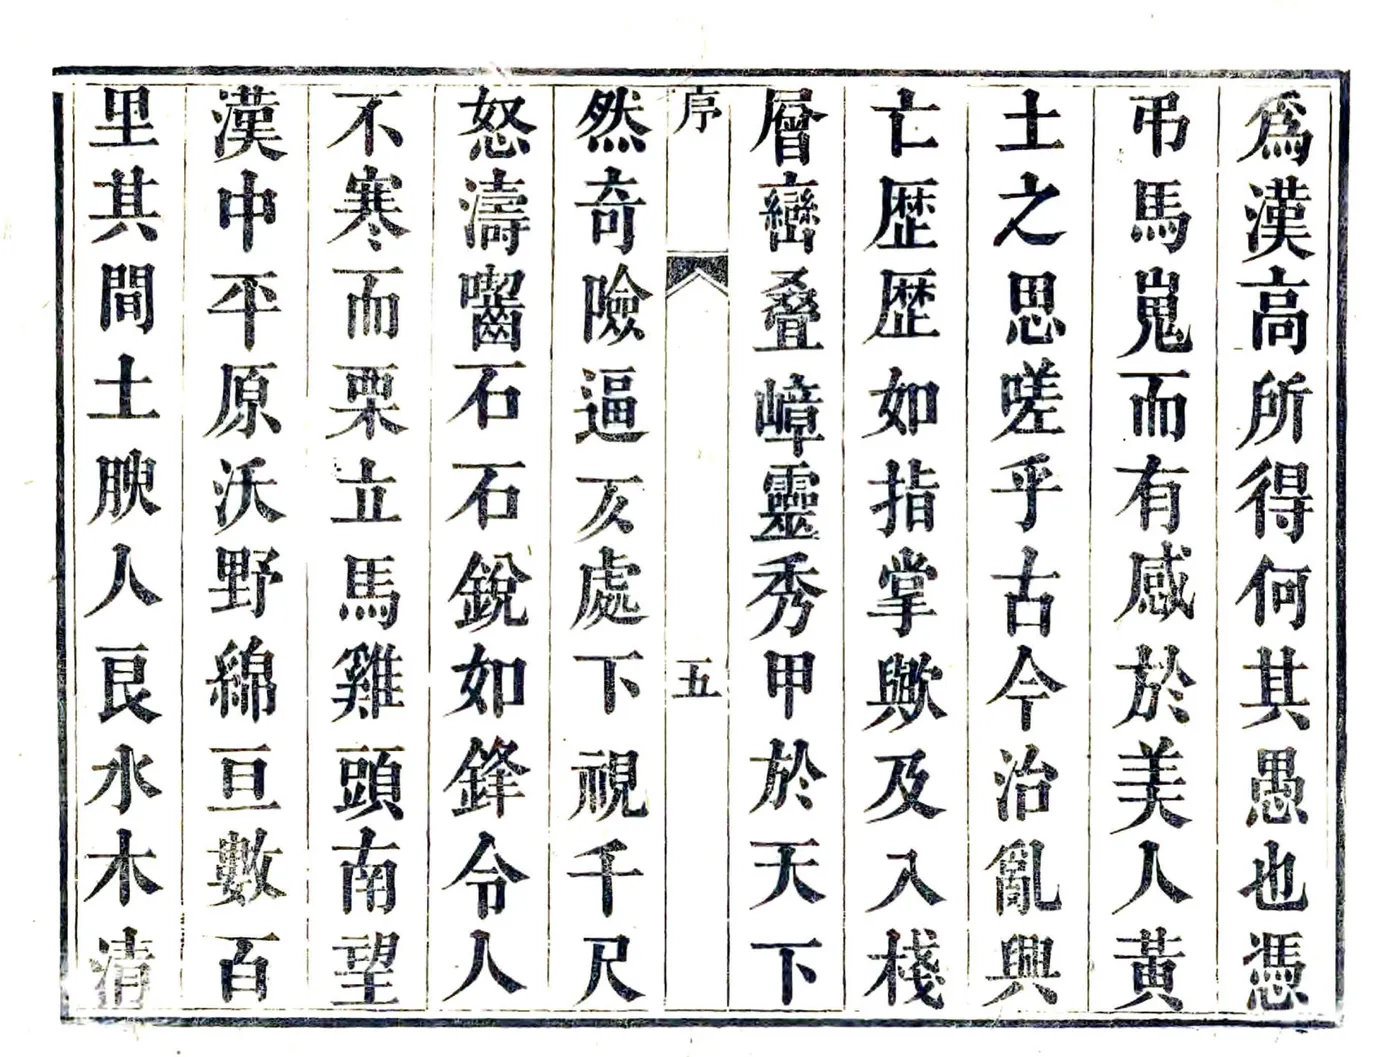 爲漢高所得何其愚也憑
弔馬嵬而有感於美人黃
土之思嗟乎古今治亂興
亡歴歴如指掌歟及入棧
層巒叠嶂靈秀甲於天下
序 五
然奇險逼仄處下視千尺
怒濤囓石石銳如鋒令人
不寒而栗立馬雞頭南望
漢中平原沃野綿亘數百
里其間土腴人良水木清